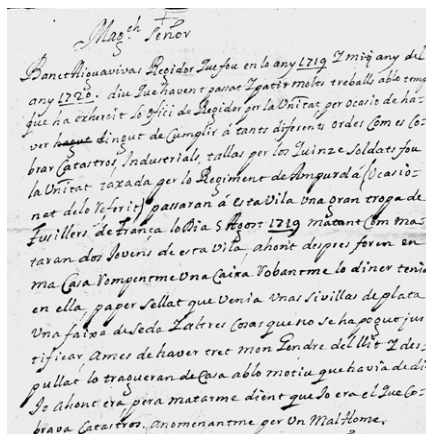 Mag.ch Señor
Banet Riguavivas Regidor que fou en lo any 1719 y mig any del
any 1720. diu que havent passat y patir moltes treballs ab lo temps
que ha exhercit lo ofici de Regidor per la Unitat per ocasio de ha-
ver hague dingut de Cumplir á tants diferents ordes com es Co-
brar Catastros, Industrials, tallas per los quinze Soldats fou
la Unitat taxada per lo Regiment de Ampurdá (Ocasio-
nat de lo Referit) passaran á Esta Vila Una gran tropa de
Fusillers de frança lo Dia 5 Agost 1719 matant com ma-
taran dos Jovens de esta Vila, ahont despres foren en
ma Casa Rompentme Una Caixa Robantme lo diner tenia
en ella, paper sellat que Venia Unas sivillas de plata
Una faixa de seda y altres Cosas que no se ha pogut jus
tificar, Ames de haver tret mon Gendre del llit y des-
pullat lo tragueran de Casa ab lo motiu que havia de dir
Jo ahont era pera matarme dient que Jo era el que Co-
brava Catastros, anomenantme per Un Mal Home.